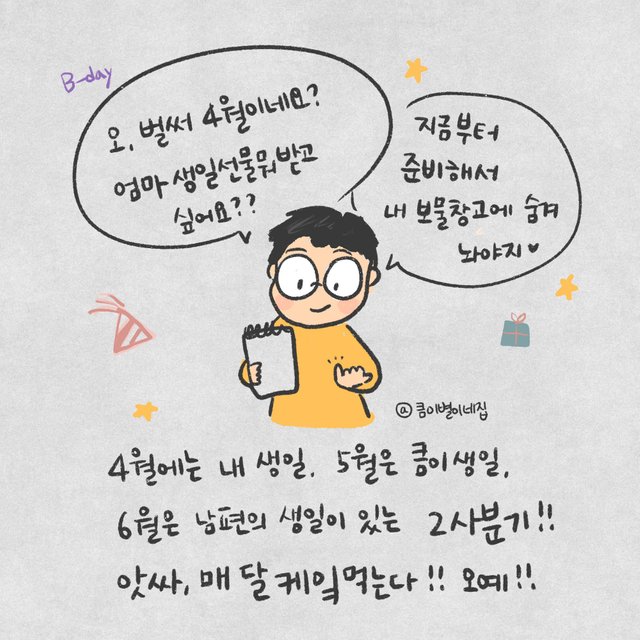 B-day
오, 벌써 4월이네요?
엄마 생일선물 뭐 받고
싶어요??
지금부터
준비해서
내 보물창고에 숨겨
놔야지♥
@콤이별이네집
4월에는 내 생일, 5월은 콤이 생일,
6월은 남편의 생일이 있는 2사분기!!
앗싸, 매 달 케잌 먹는다!! 오예!!